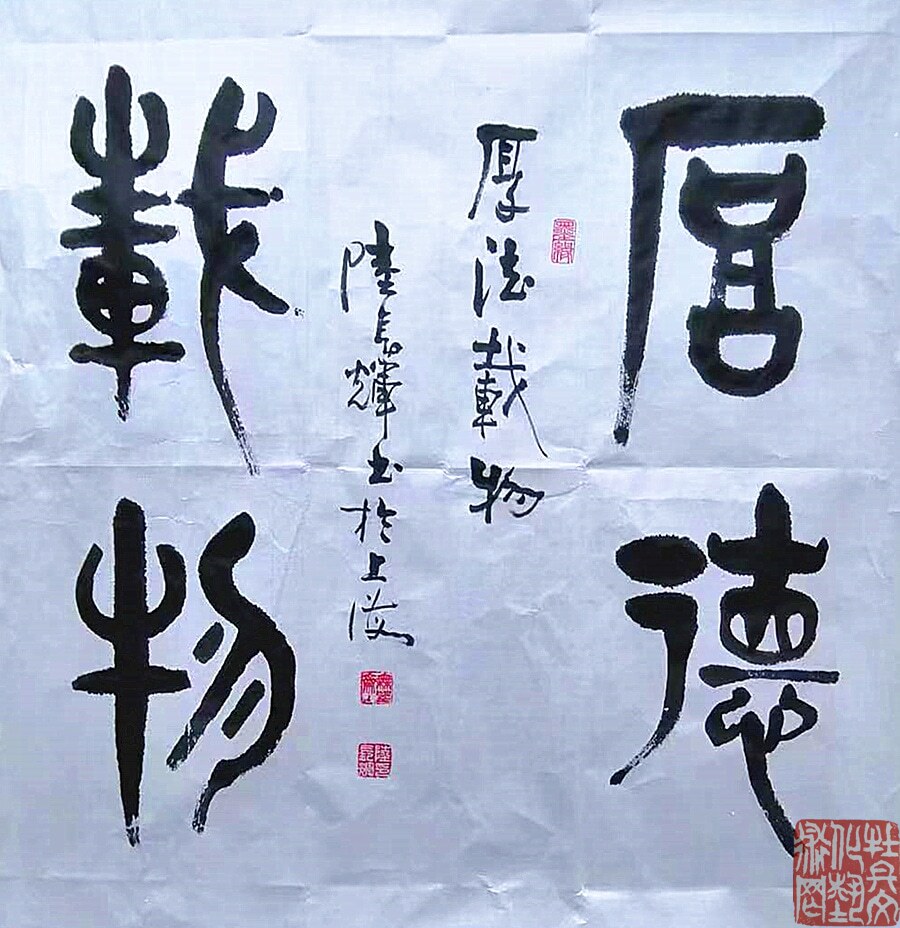 厚德
載物
厚德載物
陸長輝书於上海